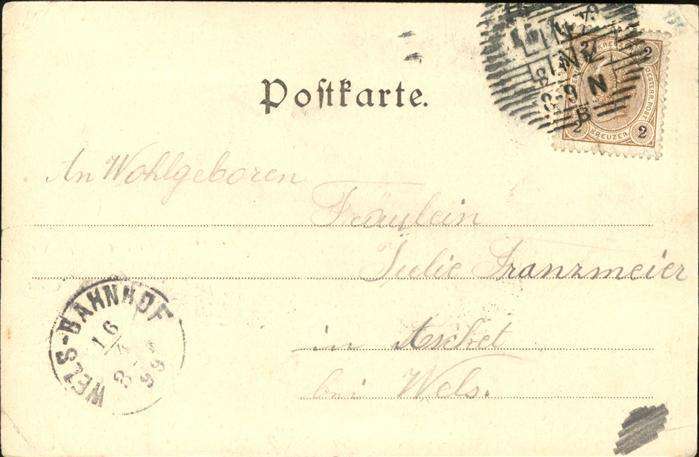 Postkarte.
LINZ
LINZ
8-9 N
B
2
2
2
KREUZER
An Wohlgeboren
Fräulein
Julie Franzmeier
in Aschet
bei Wels.
WELS-BAHNHOF
16
8
99